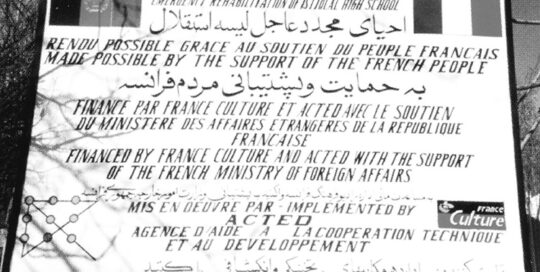 EMERGENCY REHABILITATION OF ISTIQLAL HIGH SCHOOL
احیای مجدد عاجل لیسه استقلال
RENDU POSSIBLE GRACE AU SOUTIEN DU PEUPLE FRANCAIS
MADE POSSIBLE BY THE SUPPORT OF THE FRENCH PEOPLE
به حمایت و پشتیبانی مردم فرانسه
FINANCE PAR FRANCE CULTURE ET ACTED AVEC LE SOUTIEN
DU MINISTERE DES AFFAIRES ETRANGERES DE LA REPUBLIQUE
FRANCAISE
FINANCED BY FRANCE CULTURE AND ACTED WITH THE SUPPORT
OF THE FRENCH MINISTRY OF FOREIGN AFFAIRS
MIS EN OEUVRE PAR - IMPLEMENTED BY
ACTED
AGENCE D'AIDE A LA COOPERATION TECHNIQUE
ET AU DEVELOPPEMENT
france
Culture